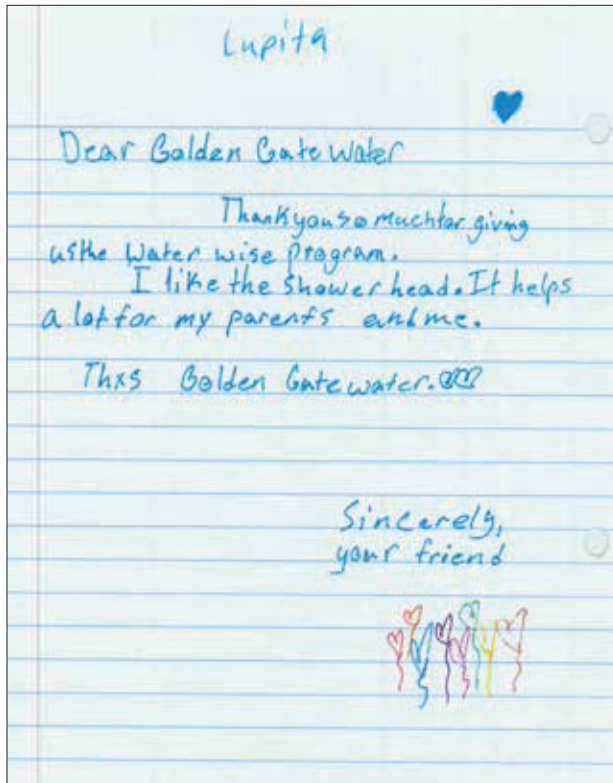 Lupita
Dear Golden Gate Water
Thank you so much for giving
us the Water wise program.
I like the shower head. It helps
a lot for my parents and me.
Thxs Golden Gate water.
Sincerely,
your friend